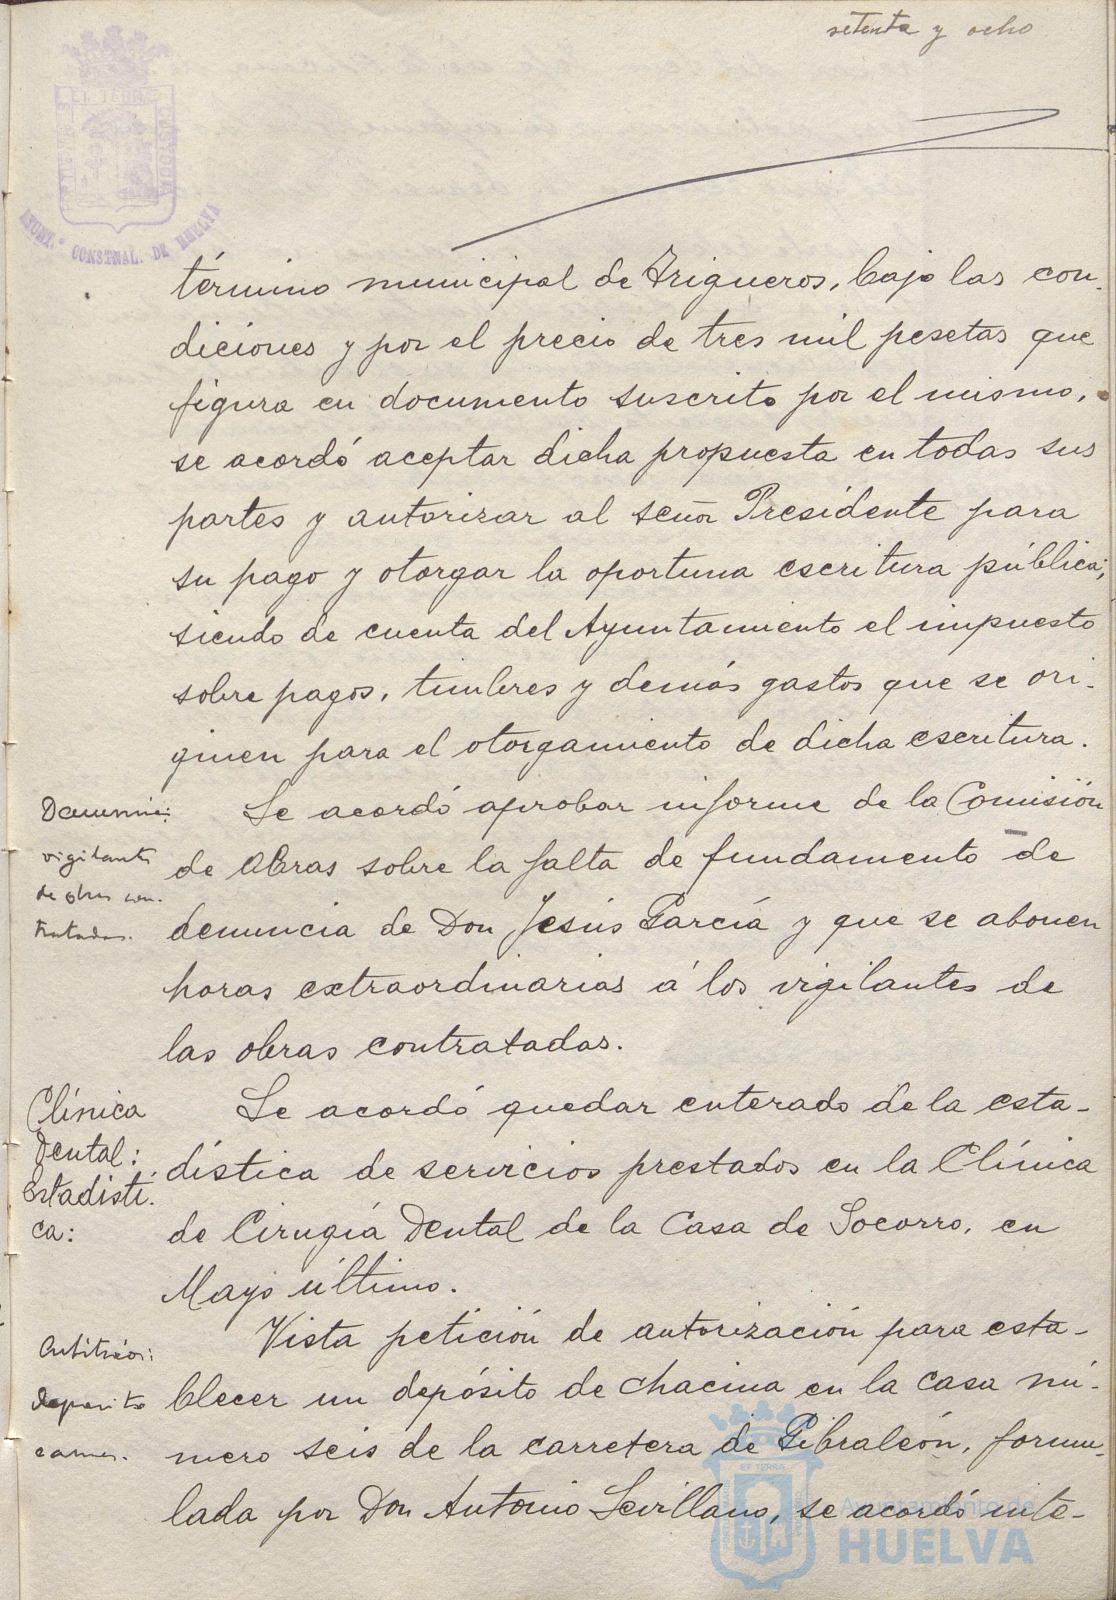 setenta y ocho
término municipal de Trigueros, bajo las con-
diciones y por el precio de tres mil pesetas que
figura en documento suscrito por el mismo,
se acordó aceptar dicha propuesta en todas sus
partes y autorizar al señor Presidente para
su pago y otorgar la oportuna escritura pública;
siendo de cuenta del Ayuntamiento el impuesto
sobre pagos, timbres y demás gastos que se ori-
ginen para el otorgamiento de dicha escritura.
Denuncia:
vigilantes
de obras con-
tratadas.
Se acordó aprobar informe de la Comisión
de Obras sobre la falta de fundamento de
denuncia de Don Jesús García y que se abonen
horas extraordinarias á los vigilantes de
las obras contratadas.
Clínica
Dental:
Estadísti-
ca:
Se acordó quedar enterado de la esta-
dística de servicios prestados en la Clínica
de Cirugía Dental de la Casa de Socorro, en
Mayo último.
Arbitrios:
Deposito
carnes.
Vista petición de autorización para esta-
blecer un depósito de chacina en la casa nú-
mero seis de la carretera de Gibraleón, formu-
lada por Don Antonio Sevillano, se acordó inte-
AYUNT.º CONSTNAL. DE HUELVA
Ayuntamiento de
HUELVA